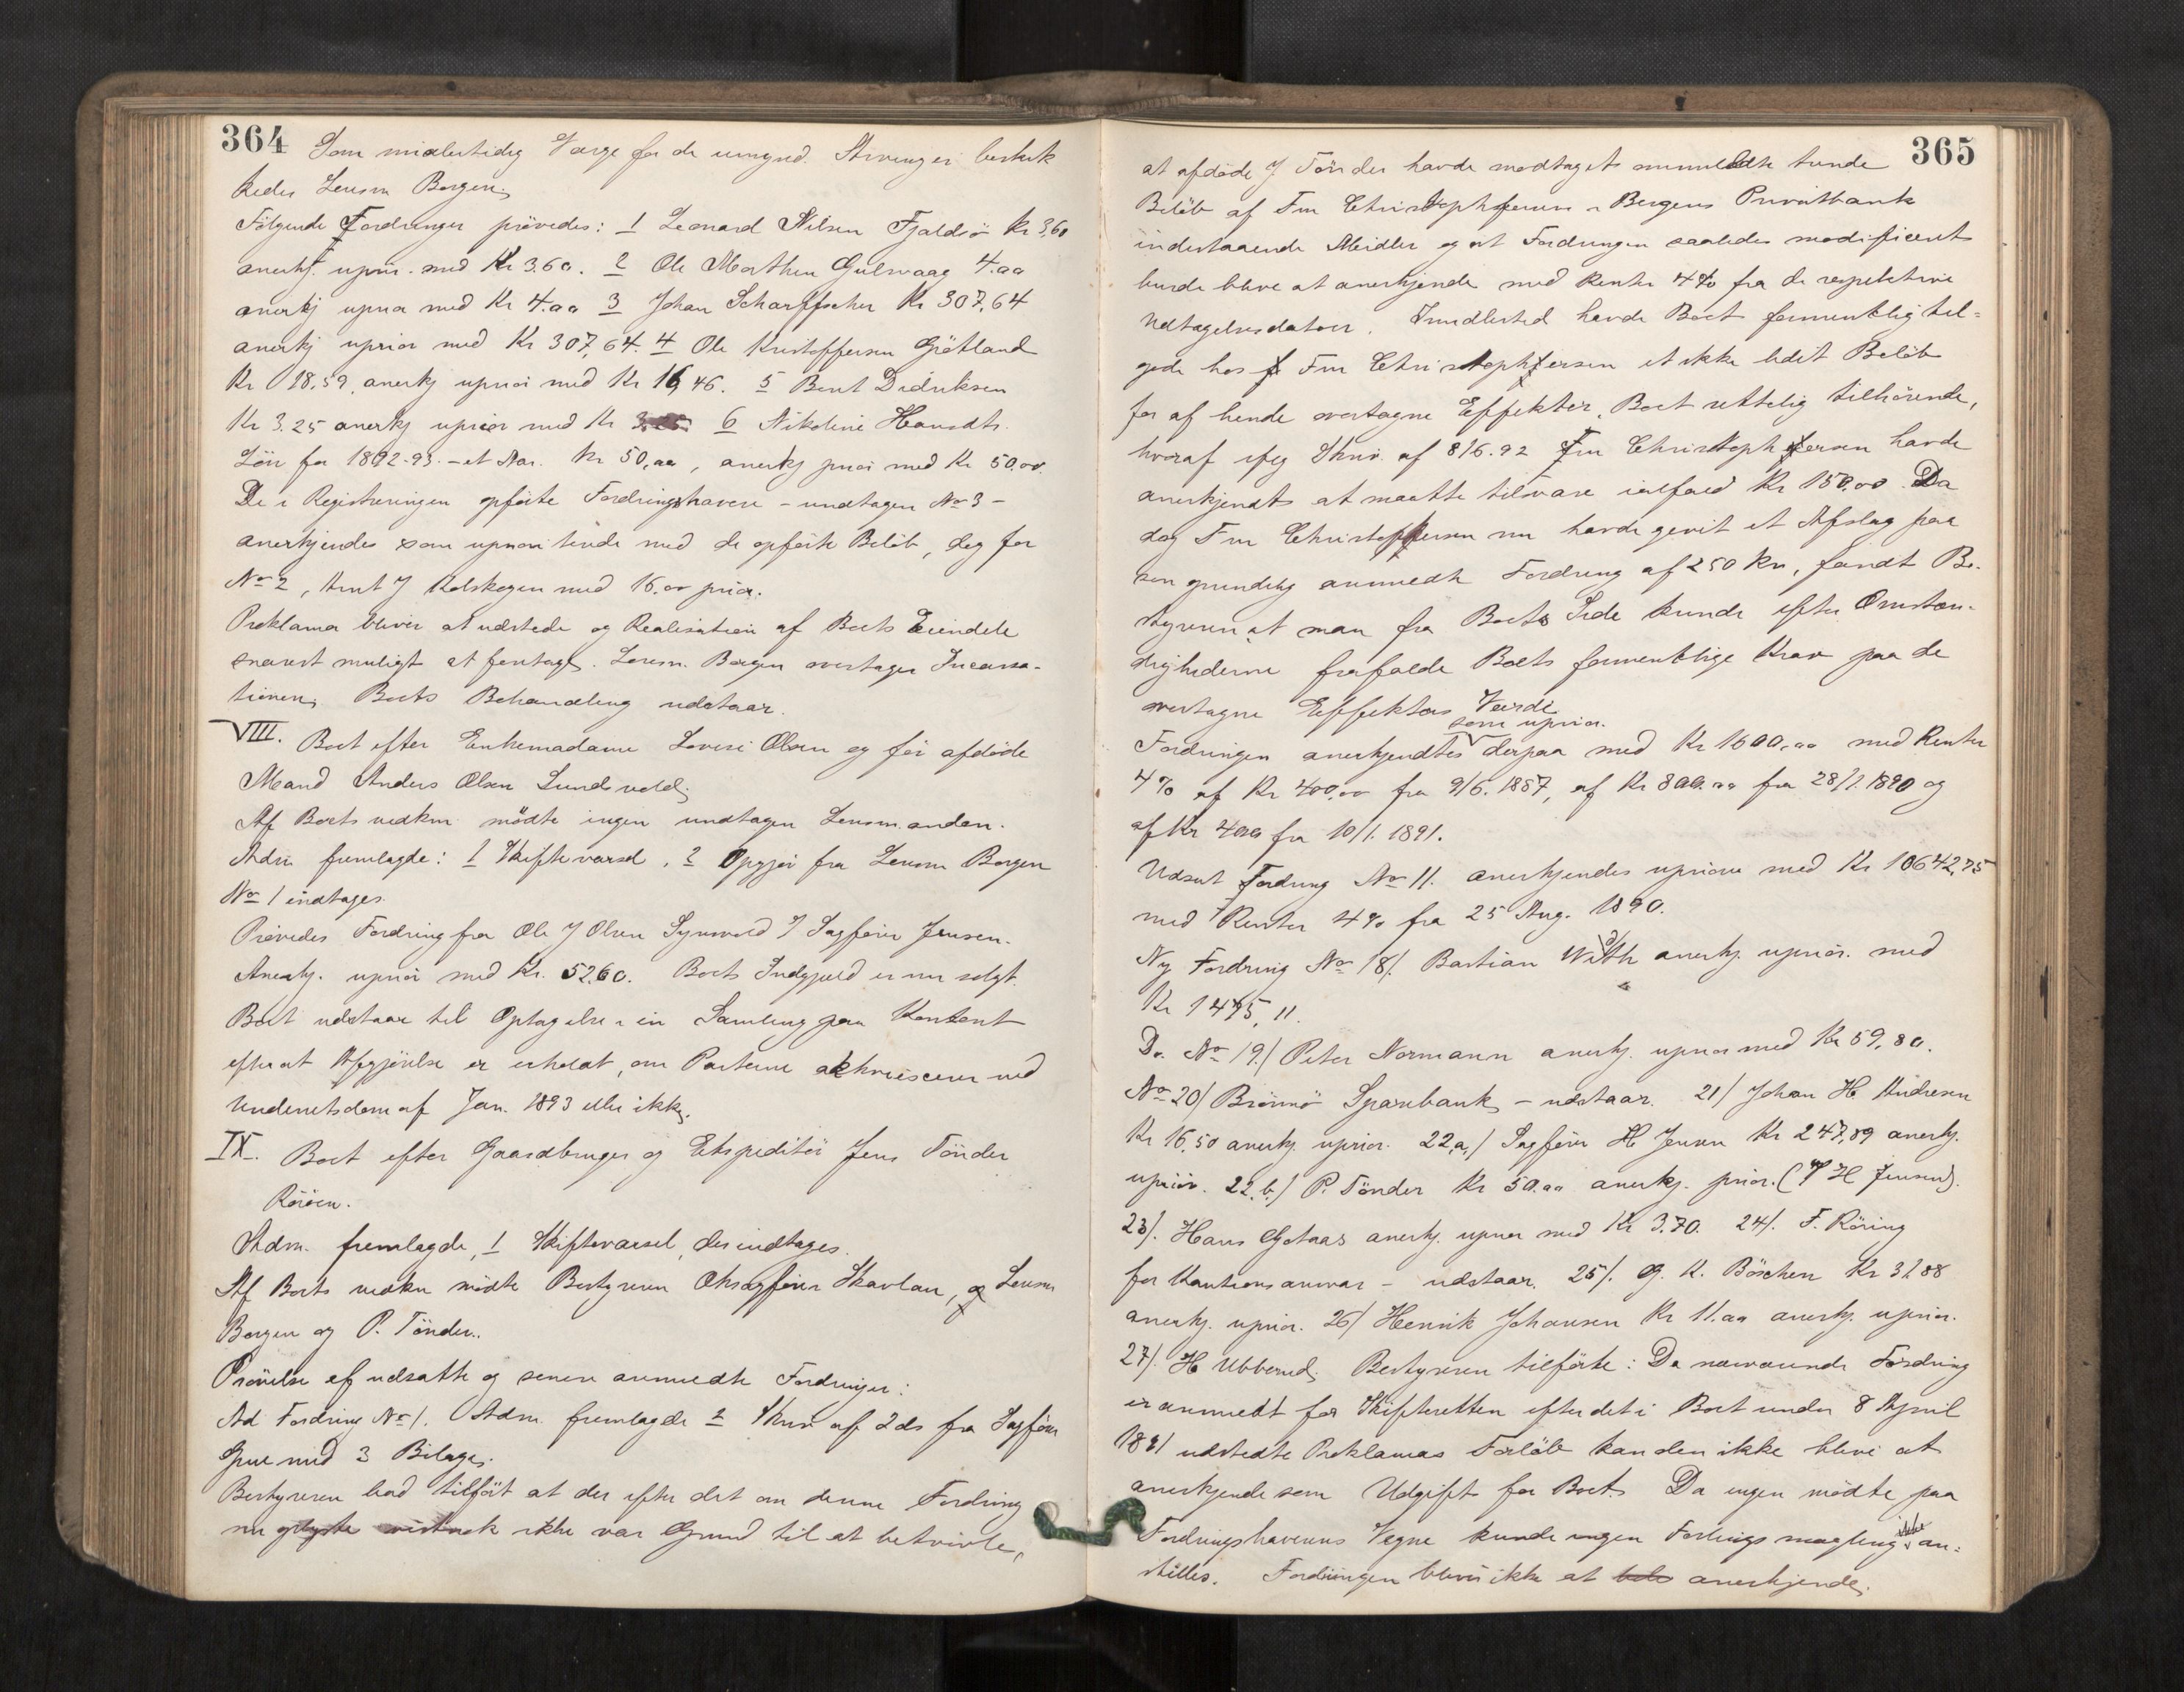 364
Som midlertidig Værge for de umynd. Arvinger beskik
kedes Lensm Borgen.
Følgende Fordringer prövedes: 1 Leonard Nilsen Fjeldsö Kr 3,60
anerkj. uprior. med Kr 3.60. 2 Ole Marthin Gulsvaag 4.00
anerkj uprior med Kr 4.00 3 Johan Scharffscher Kr 307,64
anerkj uprior med Kr 307,64. 4 Ole Kristoffersen Grötland
Kr 18,59. anerkj uprior med Kr 16,46. 5 Bent Didriksen
Kr 3.25 anerkj uprior med Kr 3.25 6 Nikoline Hansdts.
Lön for 1892-93. - et Aar. Kr 50,00, anerkj prior med Kr 50.00.
De i Registreringen opförte Fordringshavere - undtagen No 3 -
anerkjendes som uprioriterede med de opförte Belöb, dog for
No 2, Arnt J Kolskogen med 16.00 prior.
Proklama bliver at udstede og Realisation af Boets Eiendele
snarest muligt at foretage. Lensm. Borgen overtager Incassa-
tionen. Boets Behandling udstaar.
VIII. Boet efter Enkemadame Lovise Olsen og för afdöde
Mand Anders Olsen Sundsvold.
Af Boets vedkm mödte ingen undtagen Lensmanden.
Adm fremlagde: 1 Skiftevarsel. 2 Opgjör fra Lensm Borgen
No 1 indtages.
Prövedes Fordring fra Ole J Olsen Synsvold / Sagförer Jensen.
Anerkj. uprior med Kr. 52.60. Boets Indgjæld er nu solgt.
Boet udstaar til Optagelse i en Samling paa Kontoret
efterat Afgjörelse er erholdt, om Parterne akkviescerer ved
Underretsdom af Jan. 1893 eller ikke.
IX. Boet efter Gaardbruger og Ekspeditör Jens Tönder
Röröen.
Adm. fremlagde, 1 Skiftevarsel, der indtages.
Af Boets vedkm mödte Bestyreren Oksagförer Skavlan, og Lensm
Borgen og P. Tönder.
Prövelse af udsatte og senere anmeldte Fordringer:
Ad Fordring No 1. Adm. fremlagde 2 Skriv af 2 ds fra Sagförer
med 3 Bilage.
Bestyreren bad tilfört at der efter det om denne Fordring
nu oplyste vistnok ikke var Grund til at betvivle,
365
at afdöde J Tönder havde modtaget anmeldte tvende
Belöb af Fru Christophersens i Bergens Privatbank
indestaaende Midler og at Fordringen saaledes modificeret
burde blive at anerkjende med Renter 4% fra de respektive
Udtagelsesdatoer. Imidlertid havde Boet formentlig til=
gode hos Fru Christophersen et ikke lidet Belöb
for af hende overtagne Effekter, Boet rettelig tilhörende,
hvoraf ifg Skriv. af 8/6.92 Fru Christophersen havde
anerkjendt at maatte tilsvare ialfald Kr 150.00 Da
dog Fru Christophersen nu havde gjort et Afslag paa
sin grundig anmeldte Fordring af 250 Kr, fandt Be-
styreren, at man fra Boets Side kunde efter Omstæn-
dighederne frafalde Boets formentlige Krav paa de
overtagne Effekters Værdi
som uprior.
Fordringen anerkjendtes derpaa med Kr 1600,00 med Renter
4% af Kr 400,00 fra 9/6. 1887, af Kr 800.00 fra 28/1. 1890 og
af Kr 400 fra 10/1. 1891.
Udsat Fordring No 11. anerkjendes uprior med Kr 10642,75
med Renter 4% fra 25 Aug. 1890.
Ny Fordring No 18/. Bastian With anerkj. uprior. med
Kr 1475,11.
Do. No 19./ Peter Normann anerkj. uprior med Kr 59,80.
No 20/ Brönnö Sparebank - udstaar. 21/ Johan H Andresen
Kr 16,50 anerkj. uprior. 22,a,/ Sagförer H Jensen Kr 247,89 anerkj.
uprior. 22.b./ P. Tönder Kr 50.00 anerkj. prior. (/ H Jensen).
23/. Hans anerkj. uprior med Kr 3.70. 24/. F. Röring
for Kautionsansvar - udstaar. 25/. G. K. Böschen Kr 31.88
anerkj. uprior. 26/ Henrik Johansen Kr 11.00 anerkj. uprior.
27/. H Ubberud. Bestyreren tilförte: Da nærværende Fordring
er anmeldt for Skifteretten efter det i Boet under 8 April
1891 udstedte Proklamas Forlöb kan den ikke blive at
anerkjende som Udgift for Boet. Da ingen mödte paa
Fordringshaverens Vegne kunde ingen Forligsmægling ikke an=
stilles. Fordringen bliver ikke at anerkjende.